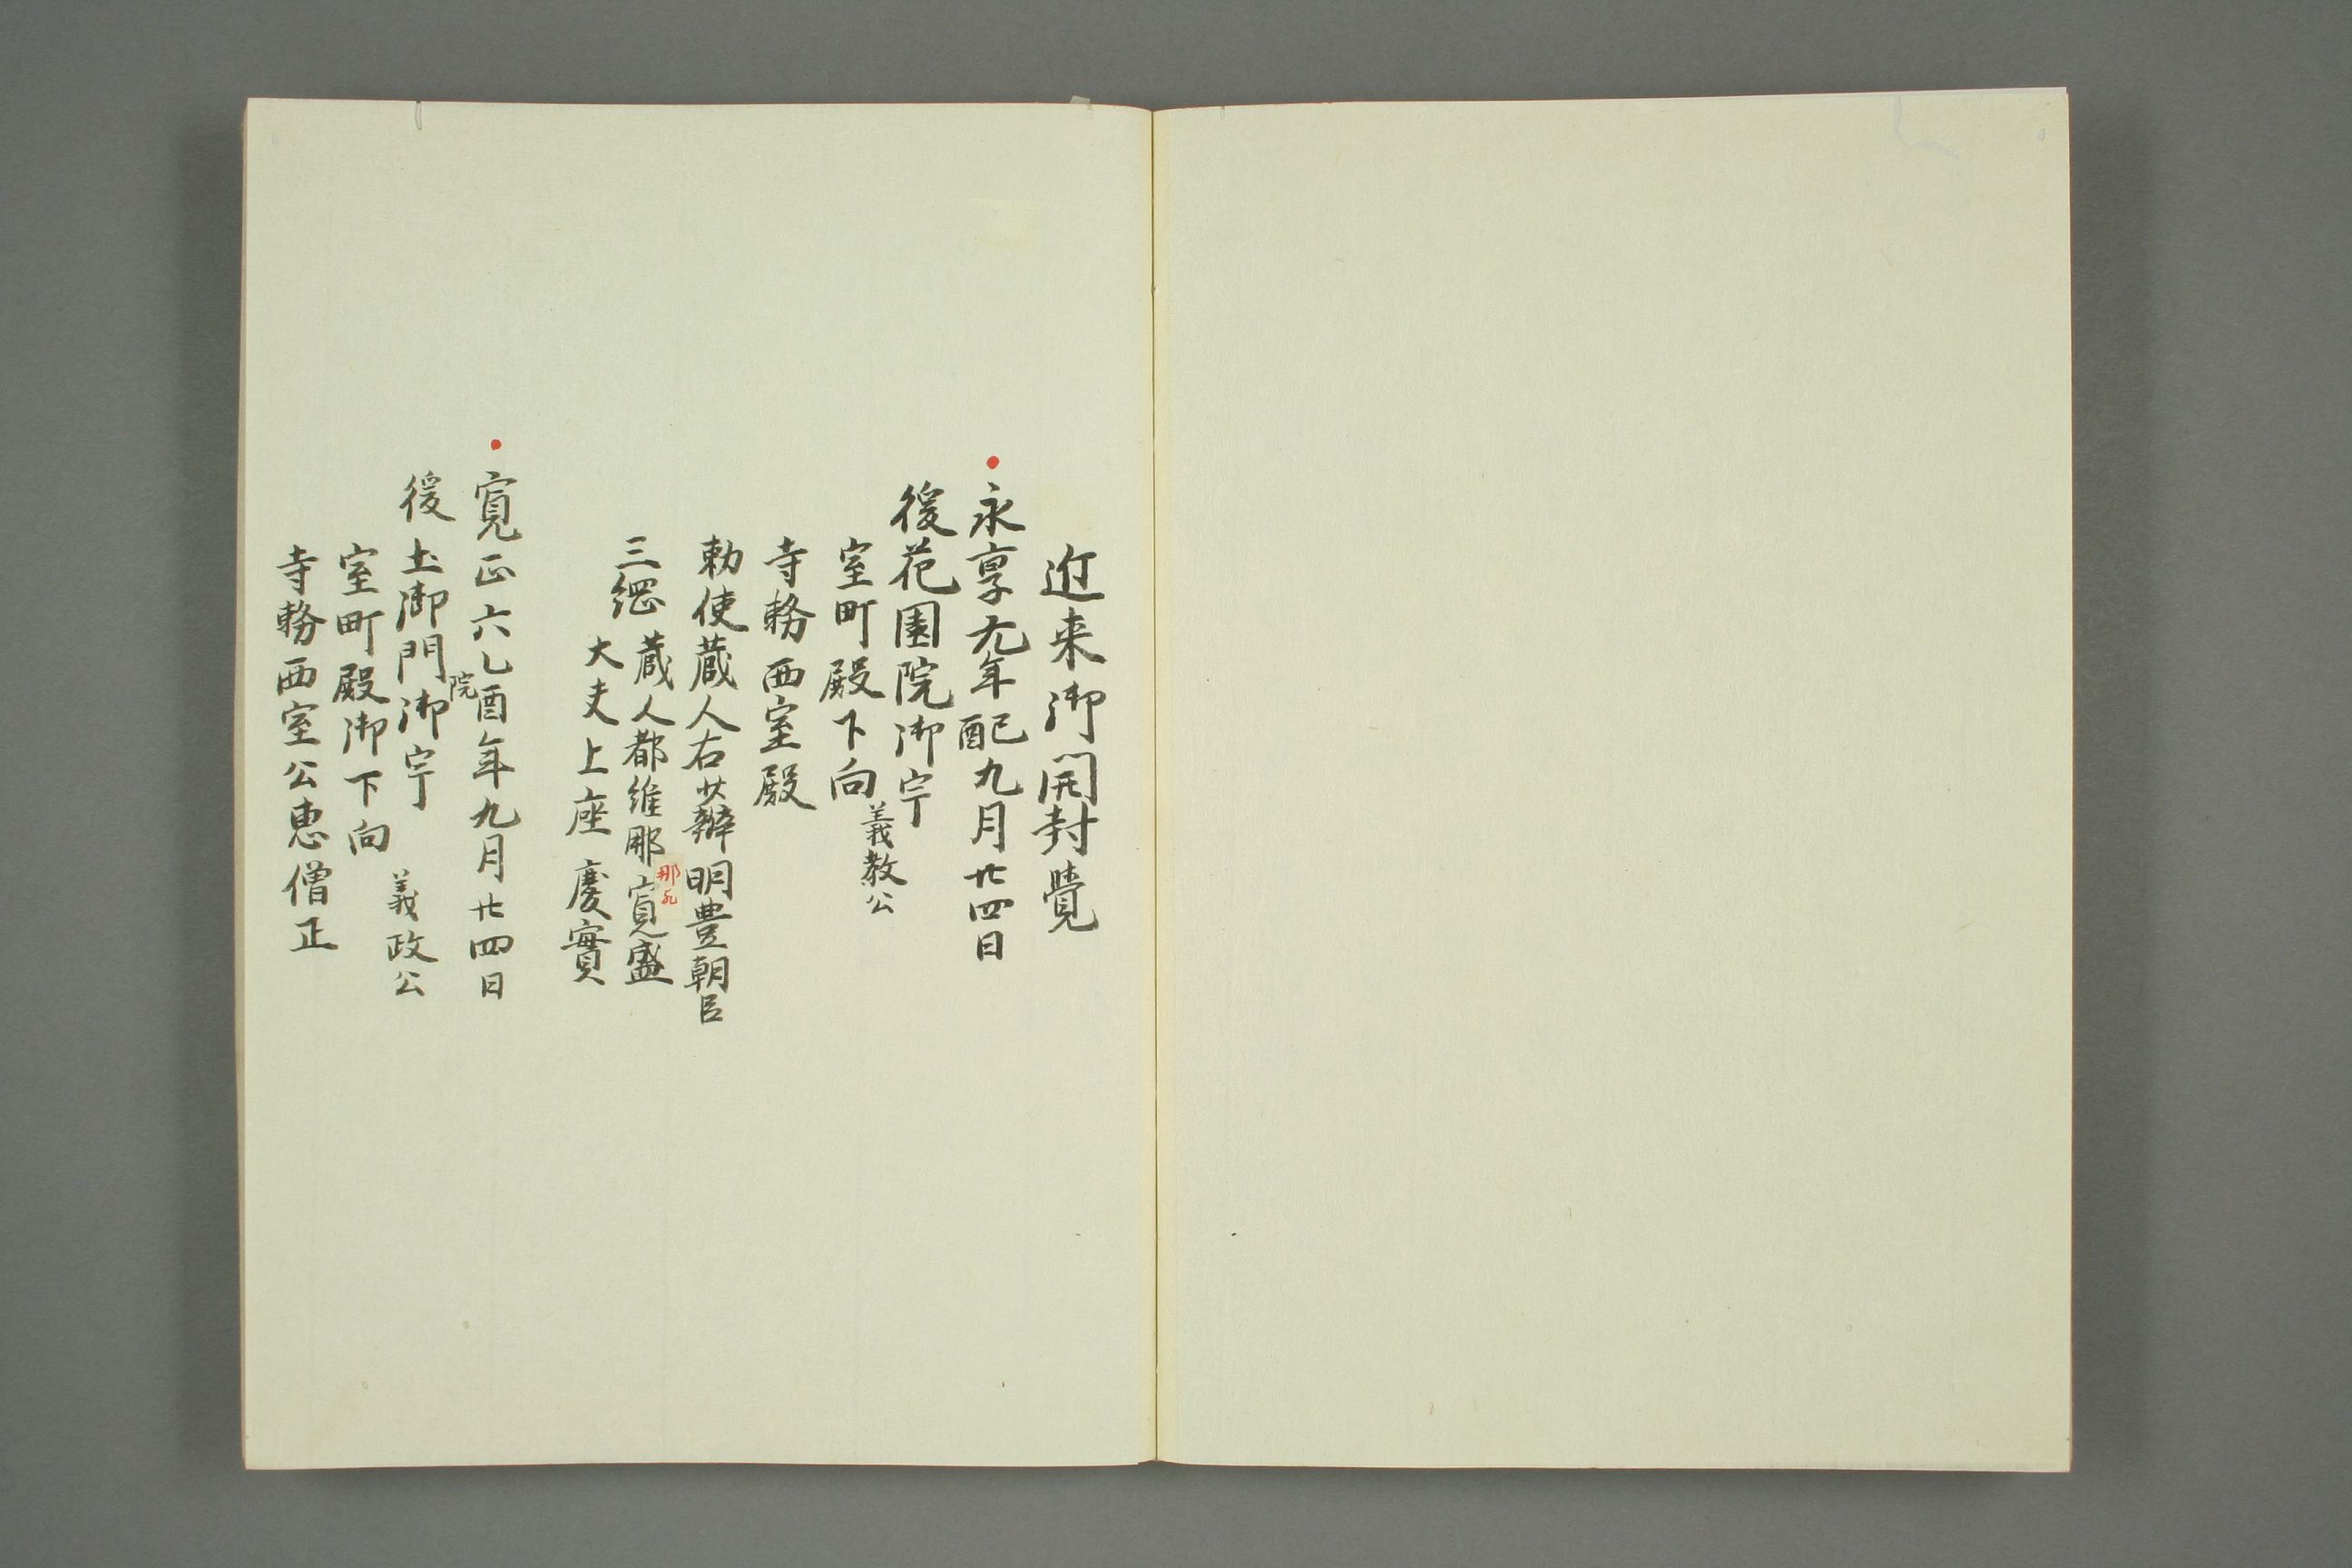 近来御開封覺
永享元年己酉九月廿四日
後花園院御宇
室町殿下向義教公
寺務西室殿
勅使蔵人右少辨明豊朝臣
三綱蔵人都維那寛盛
那
大夫上座慶實
寛正六乙酉年九月廿四日
後土御門院御宇
室町殿御下向義政公
寺務西室公恵僧正